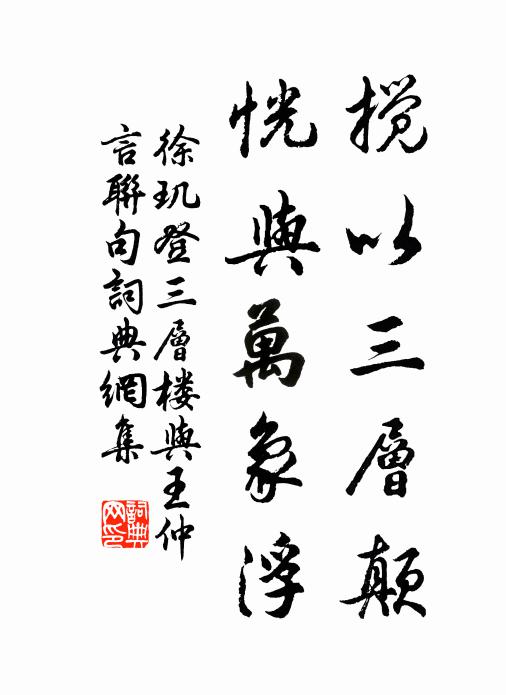 攬以三層顛
恍與萬象浮
徐玑登三層楼與王仲
言聯句詞典網集
詞典网印